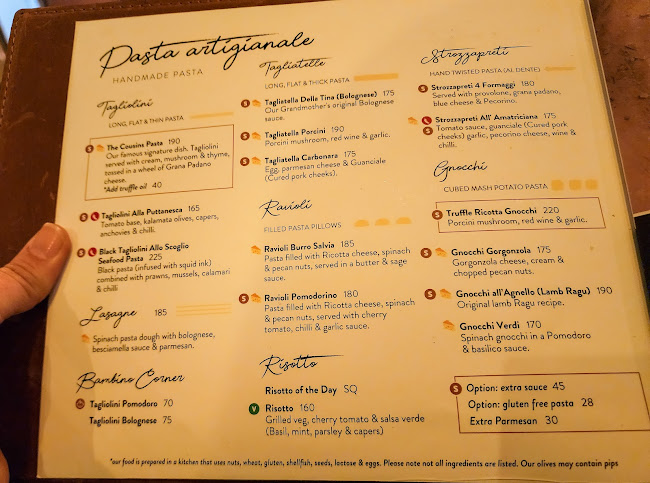 Pasta artigianale
HANDMADE PASTA
Tagliolini
LONG, FLAT & THIN PASTA
S The Cousins Pasta 190
Our famous signature dish. Tagliolini
served with cream, mushroom & thyme,
tossed in a wheel of Grana Padano
cheese.
*Add truffle oil 40
S Tagliolini Alla Puttanesca 165
Tomato base, kalamata olives, capers,
anchovies & chilli.
S Black Tagliolini Allo Scoglio
Seafood Pasta 225
Black pasta (infused with squid ink)
combined with prawns, mussels, calamari
& chilli
Lasagne 185
Spinach pasta dough with bolognese,
besciamella sauce & parmesan.
Bambino Corner
Tagliolini Pomodoro 70
Tagliolini Bolognese 75
Tagliatelle
LONG, FLAT & THICK PASTA
S Tagliatella Della Tina (Bolognese) 175
Our Grandmother's original Bolognese
sauce.
S Tagliatella Porcini 190
Porcini mushroom, red wine & garlic.
S Tagliatella Carbonara 175
Egg, parmesan cheese & Guanciale
(Cured pork cheeks).
Ravioli
FILLED PASTA PILLOWS
Ravioli Burro Salvia 185
Pasta filled with Ricotta cheese, spinach
& pecan nuts, served in a butter & sage
sauce.
S Ravioli Pomodorino 180
Pasta filled with Ricotta cheese, spinach
& pecan nuts, served with cherry
tomato, chilli & garlic sauce.
Risotto
Risotto of the Day SQ
V Risotto 160
Grilled veg, cherry tomato & salsa verde
(Basil, mint, parsley & capers)
Strozzapreti
HAND TWISTED PASTA (AL DENTE)
S Strozzapreti 4 Formaggi 180
Served with provolone, grana padano,
blue cheese & Pecorino.
S Strozzapreti All' Amatriciana 175
Tomato sauce, guanciale (Cured pork
cheeks) garlic, pecorino cheese, wine &
chilli.
Gnocchi
CUBED MASH POTATO PASTA
S Truffle Ricotta Gnocchi 220
Porcini mushroom, red wine & garlic.
S Gnocchi Gorgonzola 175
Gorgonzola cheese, cream &
chopped pecan nuts.
S Gnocchi all'Agnello (Lamb Ragu) 190
Original lamb Ragu recipe.
Gnocchi Verdi 170
Spinach gnocchi in a Pomodoro
& basilico sauce.
S Option: extra sauce 45
Option: gluten free pasta 28
Extra Parmesan 30
*our food is prepared in a kitchen that uses nuts, wheat, gluten, shellfish, seeds, lactose & eggs. Please note not all ingredients are listed. Our olives may contain pips